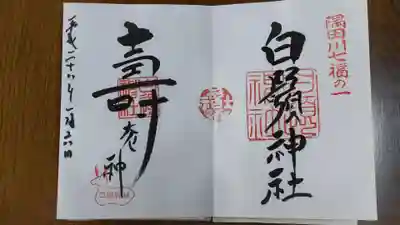 隅田川七福の一
白鬚神社
壽老神
平成二十六年一月六日